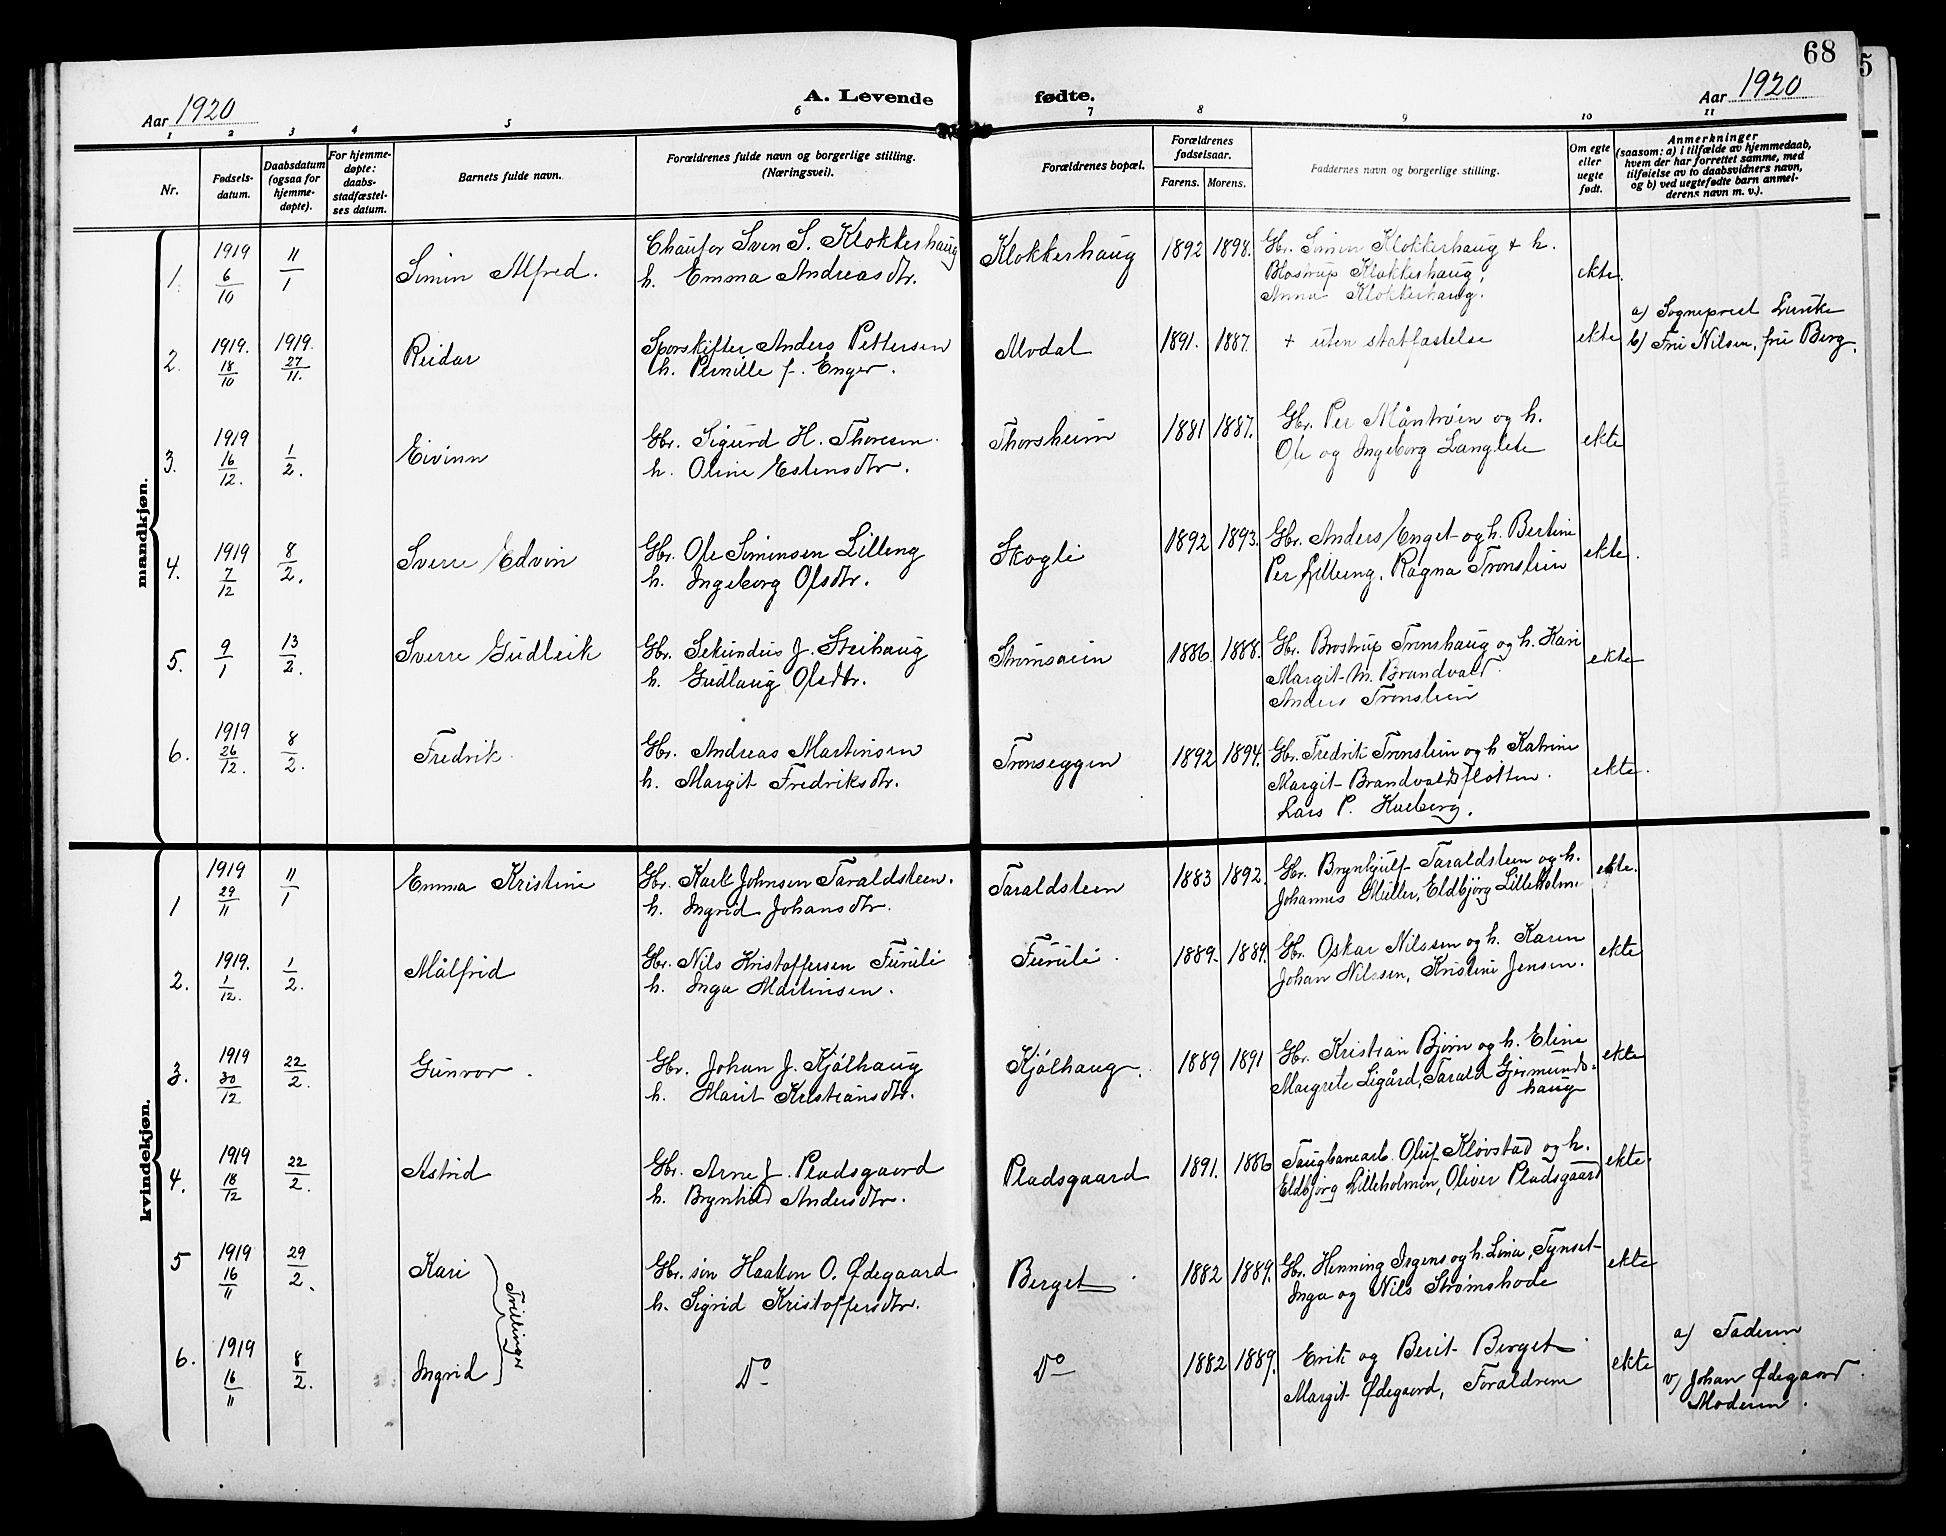 68
5
Aar 1920
A. Levende fødte.
Aar 1920
1 2 3 4 5 6 7 8 9 10 11
Nr.
Fødsels-
datum.
Daabsdatum
(ogsaa for
hjemme-
døpte).
For hjemme-
døpte:
daabs-
stadfæstel-
ses datum.
Barnets fulde navn.
Forældrenes fulde navn og borgerlige stilling.
(Næringsvei).
Forældrenes bopæl.
Forældrenes
fødselsaar.
Farens. Morens.
Faddernes navn og borgerlige stilling.
Om egte
eller
uegte
født.
Anmerkninger
(saasom: a) i tilfælde av hjemmedaab,
hvem der har forrettet samme, med
tilføielse av to daabsvidners navn,
og b) ved uegtefødte barn anmel-
derens navn m. v.).
mandkjøn.
1. 1919 6/10 11/1 Simin Alfred.
Chaufør Sven S. Klokkerhaug
h. Emma Andreasdtr.
Klokkerhaug 1892 1898.
Gbr. Simen Klokkerhaug + h.
Brostrup Klokkerhaug,
Anna Klokkerhaug.
ekte.
2. 1919. 18/10 1919. 27/11. Reidar
Sporskifter Anders Pettersen
h. Pernille f. Enger.
Alvdal 1891. 1887.
+ uten statfæstelse
ekte
a) Sogneprest Lunke
b) Fru Nilsen, fru Berg.
3. 1919 16/12. 1/2. Eivinn
Gbr. Sigurd H. Thoresen
h. Oline Estensdtr.
Thorsheim 1881 1887.
Gbr. Per Måntrøen og h.
Ole og Ingeborg Langlete
ekte
4. 1919 7/12 8/2. Sverre Edvin
Gbr. Ole Simensen Lilleng
h. Ingeborg Olsdtr.
Skogli 1892 1893.
Gbr. Anders Enget og h. Bertine
Per Lilleeng. Ragna Tronslien
ekte.
5. 9/1 13/2. Sverre Gudleik
Gbr. Sekundus J. Steihaug
h. Gudlaug Olsdtr.
Strømsøien 1886. 1888.
Gbr. Brostrup Tronshaug og h. Kari
Margit M. Brandvald
Anders Tronslien
ekte
6. 1919 26/12. 8/2. Fredrik.
Gbr. Andreas Martinsen
h. Margit Fredriksdtr.
Tronseggen 1892 1894.
Gbr. Fredrik Tronslien og h Katrine
Margit Brandvoldsflotten.
Lars P. Kveberg.
ekte.
kvindekjøn.
1 1919 29/11 11/1 Emma Kristine
Gbr. Karl Johnsen Taraldsteen.
h. Ingrid Johansdtr.
Taraldsteen 1883 1892.
Gbr. Brynhjulf Taraldsteen og h.
Johannes Müller, Eldbjörg Lilleholm
ekte.
2. 1919. 1/12. 1/2. Målfrid
Gbr. Nils Kristoffersen Furuli
h. Inga Martinsen.
Furuli. 1889. 1889.
Gbr. Oskar Nilssen og h. Karen
Johan Nilssen, Kristine Jensen.
ekte
3. 1919 30/12 22/2. Gunvor.
Gbr. Johan J. Kjölhaug
h. Marit Kristiansdtr.
Kjölhaug. 1889 1891
Gbr. Kristian Bjørn og h. Eline
Margrete Ligård, Tarald Gjermunds-
haug
ekte
4. 1919 18/12 22/2. Astrid
Gbr. Arne J. Pladsgaard
h. Brynhild Andersdtr.
Pladsgaard 1891. 1886
Taugbanearb. Oluf Kløvstad og h.
Eldbjörg Lilleholmen, Oliver Pladsgaard
ekte.
5 1919 16/11 29/2. Kari
Trillinger
Gbr. søn Haakon O. Ødegaard
h. Sigrid Kristoffersdtr.
Berget 1882 1889.
Gbr. Henning Irgens og h. Lina, Tynset-
Inga og Nils Strømshode
ekte
6. 1919 16/11 8/2. Ingrid
Do Do 1882 1889.
Erik og Berit Berget
Margit Ødegaard, Foraldrene
ekte
a) Faderen
v) Johan Ødegaard.
Moderen.